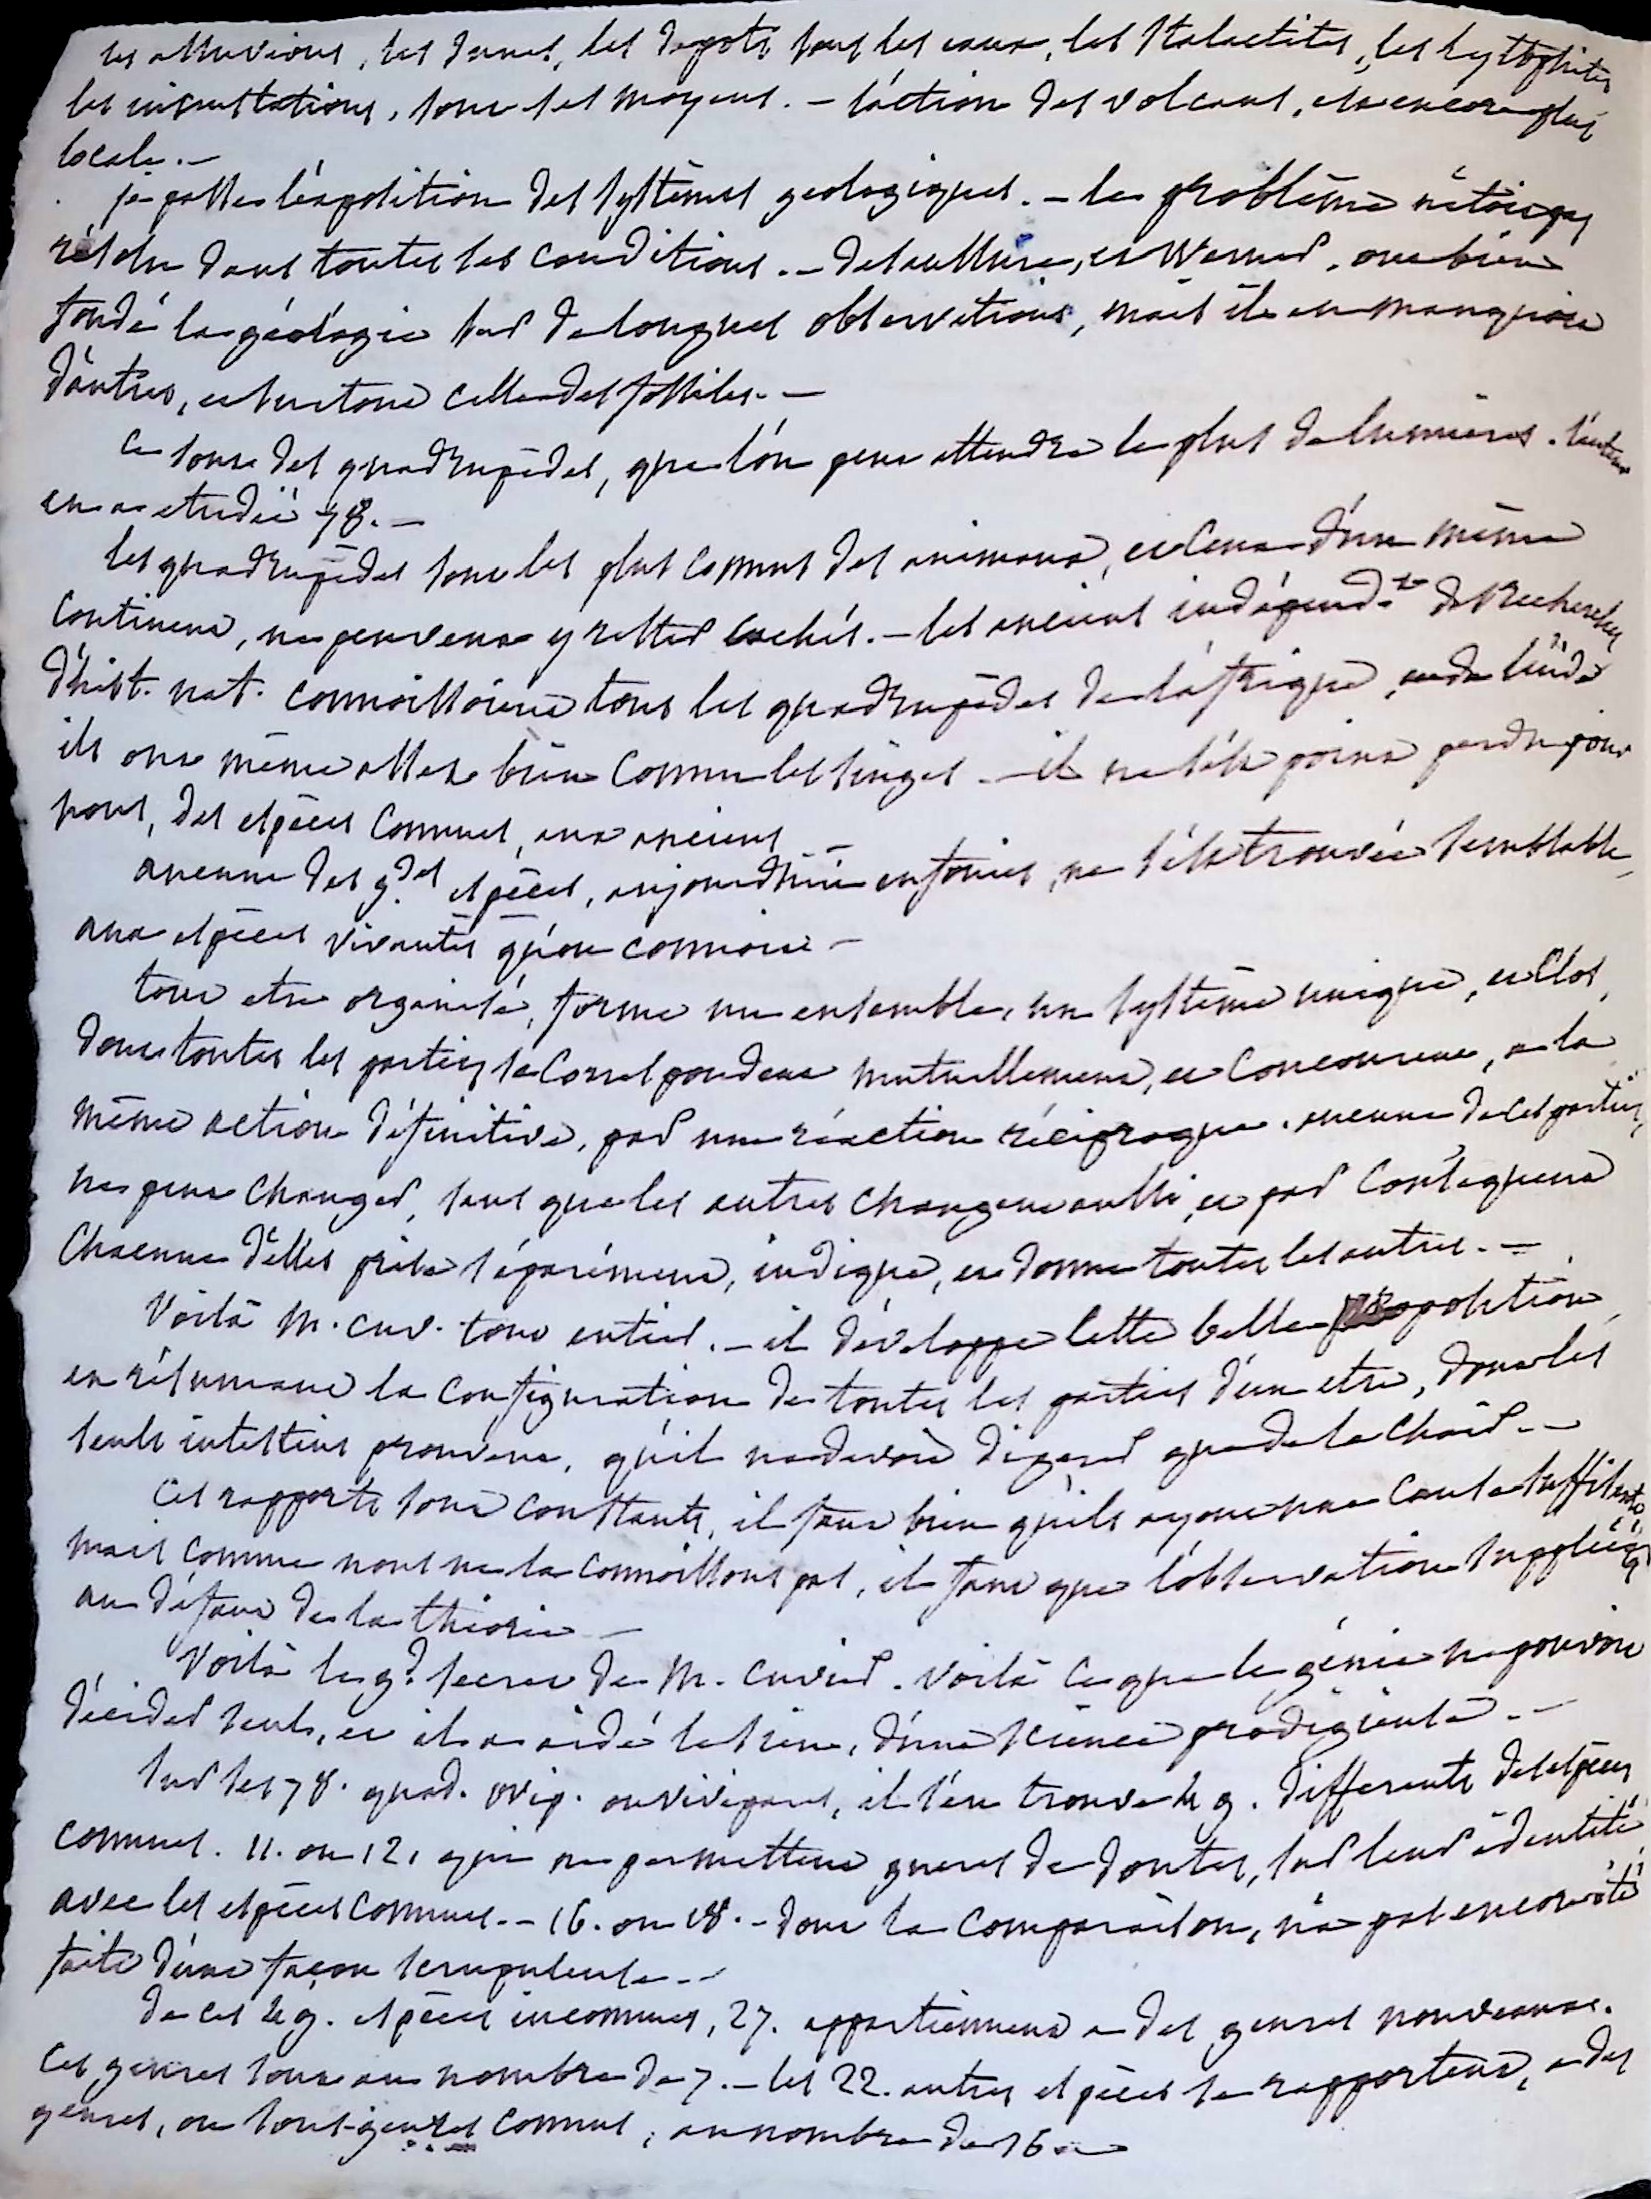 les alluvions, les dunes, les depots sous les eaux, les stalactites, les lytophites
les incrustations, sont ses moyens. – l'action des volcans, est encore plus
locale. –
je passe l'exposition des systèmes geologiques. – le problème n'étoit pas
résolu dans toutes les conditions. – desaussure, et Werner, ont bien
fondé la géologie sur de longues observations, mais il en manquoit
d'autres, et surtout celle des fossiles. –
ce sont des quadrupèdes, que l'on peut attendre le plus de lumières. l'auteur
en a etudié 78. –
les quadrupèdes sont les plus connus des animaux, et ceux d'un même
continent, ne peuvent y rester cachés. – les anciens indépend.t de recherches
d'hist. nat. connoissoient tous les quadrupèdes de l'afrique, et de l'inde
ils ont même assez bien connu les singes – il ne s'est point perdu pour
nous, des espèces connues, aux anciens –
aucune des g.des espèces, aujourdhui enfouies, ne s'est trouvée semblable,
aux espèces vivantes qu'on connoit –
tout etre organisé, forme un ensemble, un système unique, et clos,
dont toutes les parties se correspondent mutuellement, et concourent, a la
même action définitive, par une réaction réciproque. aucune de ces parties,
ne peut changer, sans que les autres changent aussi, et par conséquent
chacune d'elles prise séparément, indique, et donne toutes les autres. –
Voilà M. cuv. tout entier. – il développe cette belle proposition,
en résumant la configuration de toutes les parties d'un etre, dont les
seuls intestins prouvent, qu'il ne devoit digerer que de la chair. –
Ces rapports sont constants, il faut bien qu'ils ayent une cause suffisante,
mais comme nous ne la connoissons pas, il faut que l'observation supplée
au défaut de la théorie –
Voilà le g.d secret de M. Cuvier. Voilà ce que le génie ne pouvoit
décider seul, et il a aidé le sien, d'une science prodigieuse. –
sur les 78. quad. ovip. ou vivipares, il s'en trouve 49. differents des espèces
connues. 11. ou 12, qui ne permettent gueres de doutes, sur leur identité
avec les espèces connues. – 16. ou 18. – dont la comparaison, n'a pas encore été
faite d'une façon scrupuleuse. –
de ces 49. espèces inconnues, 27. appartiennent a des genres nouveaux.
ces genres sont au nombre de 7. – les 22. autres espèces se rapportent, a des
genres, ou sous-genres connus, au nombre de 16 –